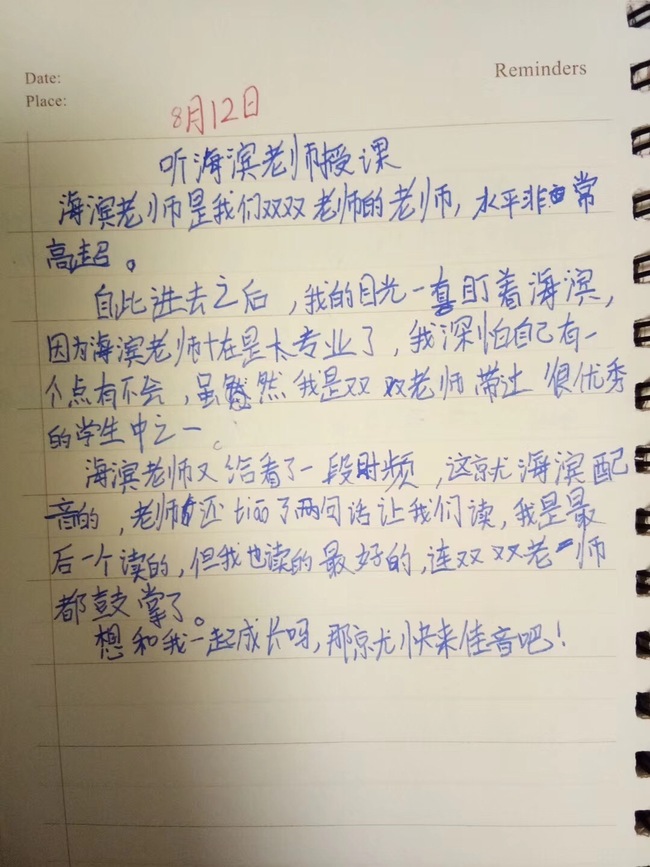 Date:
Reminders
Place:
8月12日
听海滨老师授课
海滨老师是我们双双老师的老师,水平非常
高超。
自此进去之后,我的目光一直盯着海滨,
因为海滨老师十在是太专业了,我深怕自己有一
个点有不会,虽然我是双双老师带出很优秀
的学生中之一。
海滨老师又给看了一段时频,这就海滨配
音的,老师还tiao了两句话让我们读,我是最
后一个读的,但我也读的最好的,连双双老师
都鼓掌了。
想和我一起成长吗,那就快来佳音吧!